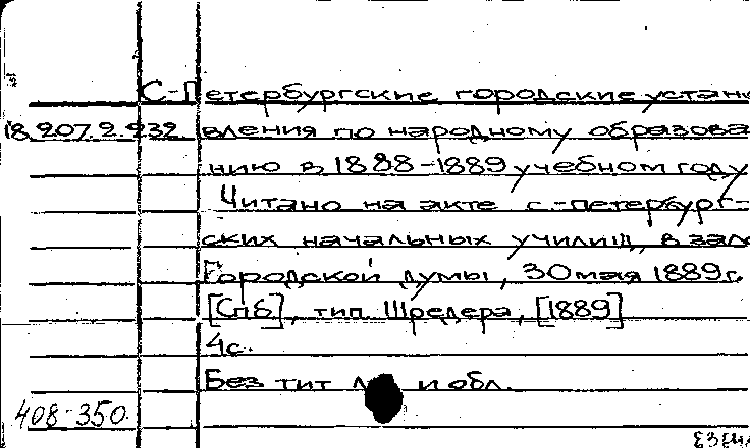 С-Петербургские городские устано
18.207.2.232 вления по народному образова
нию в 1888-1889 учебном году
Читано на акте с.-петербург-
ских начальных училищ, в зале
Городской думы, 30 мая 1889 г.
[Спб], тип. Шредера, [1889]
4с.
Без тит и обл.
408-350.